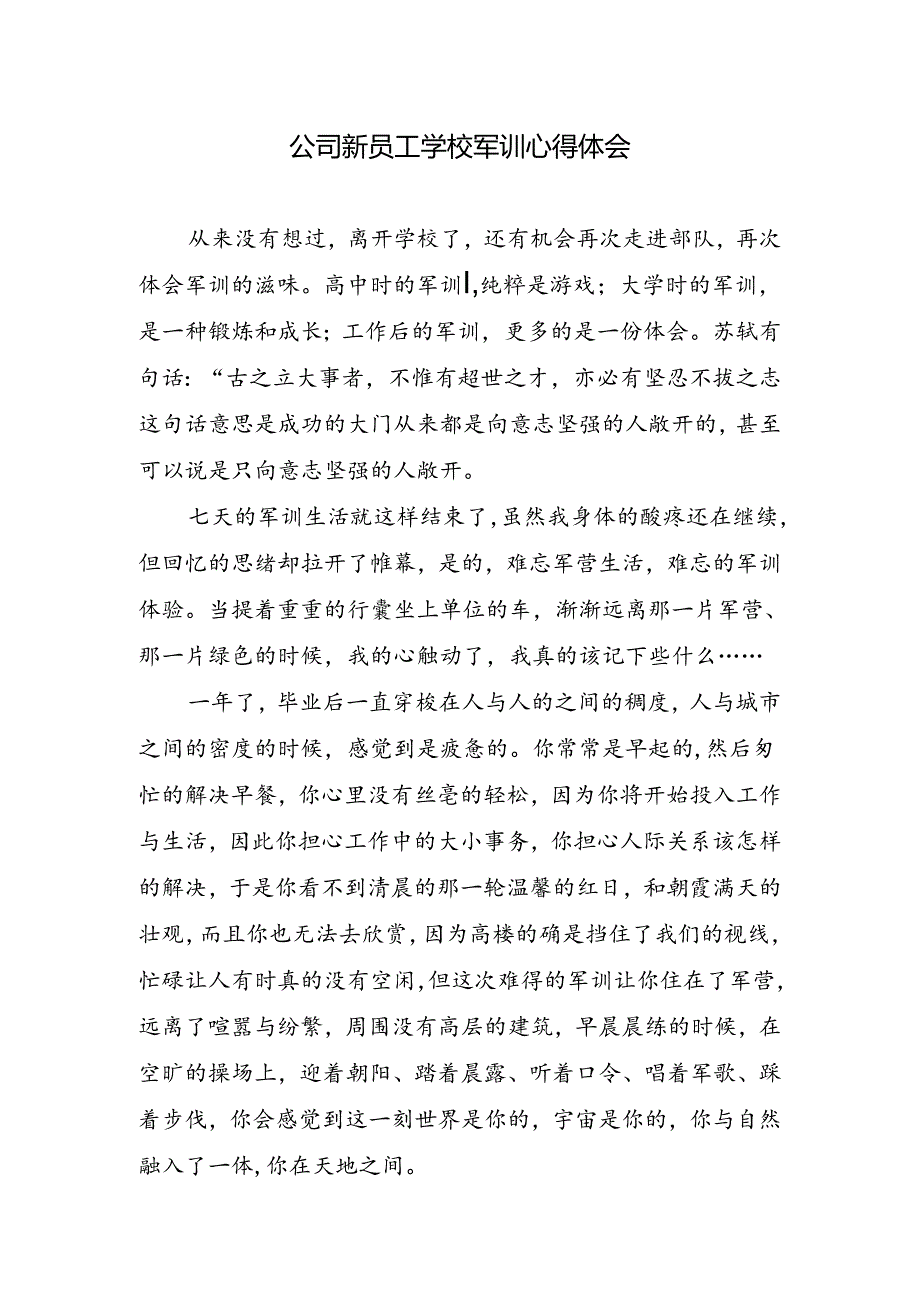 公司新员工学校军训心得体会
从来没有想过，离开学校了，还有机会再次走进部队，再次
体会军训的滋味。高中时的军训|,纯粹是游戏；大学时的军训，
是一种锻炼和成长；工作后的军训，更多的是一份体会。苏轼有
句话：“古之立大事者，不惟有超世之才，亦必有坚忍不拔之志
这句话意思是成功的大门从来都是向意志坚强的人敞开的，甚至
可以说是只向意志坚强的人敞开。
七天的军训生活就这样结束了,虽然我身体的酸疼还在继续,
但回忆的思绪却拉开了帷幕，是的，难忘军营生活，难忘的军训
体验。当提着重重的行囊坐上单位的车，渐渐远离那一片军营、
那一片绿色的时候，我的心触动了，我真的该记下些什么……
一年了，毕业后一直穿梭在人与人的之间的稠度，人与城市
之间的密度的时候，感觉到是疲惫的。你常常是早起的,然后匆
忙的解决早餐，你心里没有丝毫的轻松，因为你将开始投入工作
与生活，因此你担心工作中的大小事务，你担心人际关系该怎样
的解决，于是你看不到清晨的那一轮温馨的红日，和朝霞满天的
壮观,而且你也无法去欣赏,因为高楼的确是挡住了我们的视线,
忙碌让人有时真的没有空闲,但这次难得的军训让你住在了军营,
远离了喧嚣与纷繁，周围没有高层的建筑，早晨晨练的时候，在
空旷的操场上，迎着朝阳、踏着晨露、听着口令、唱着军歌、踩
着步伐，你会感觉到这一刻世界是你的，宇宙是你的，你与自然
融入了一体,你在天地之间。